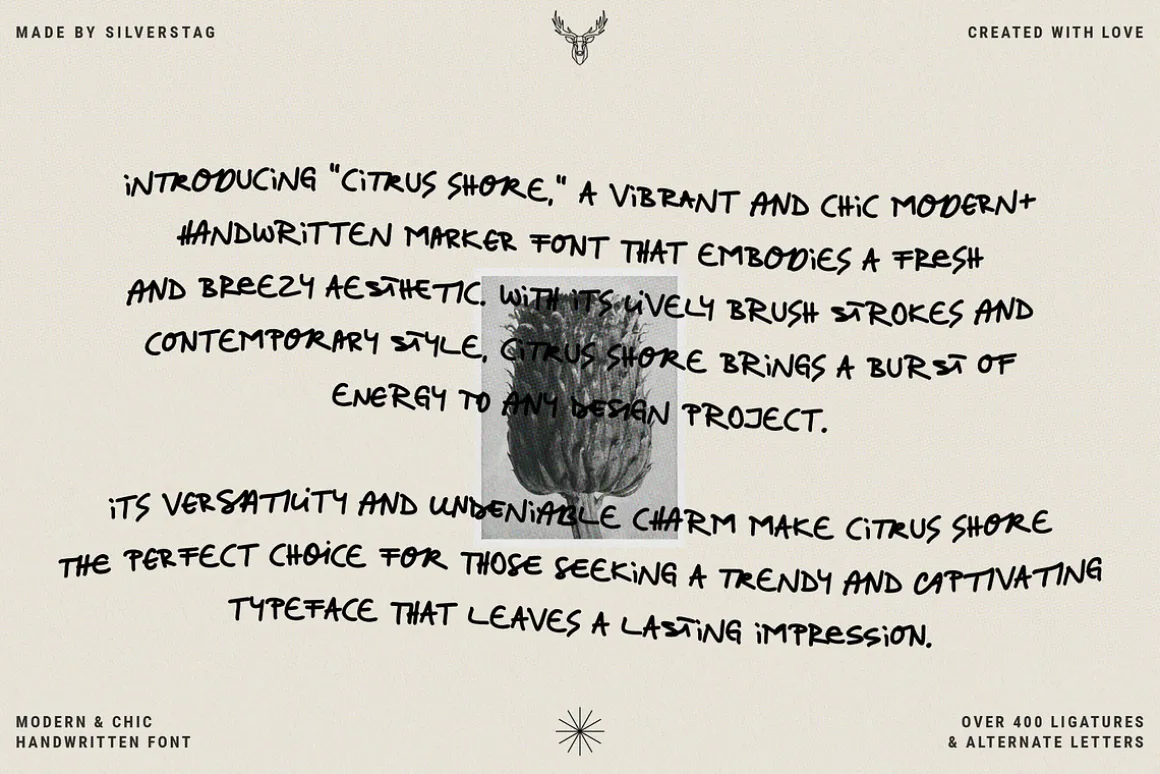 MADE BY SILVERSTAG
CREATED WITH LOVE
iNTRODUCiNG "CiTRUS SHORE," A ViBRANT AND CHiC MODERN+
HANDWRiTTEN MARKER FONT THAT EMBODiES A FReSH
AND BReEZY AESTHETIC. WiTH iTS LiVELY BRUSH STROKES AND
CONTEMPORARY STYLE, CiTRUS SHORE BRiNGS A BURST OF
ENERGY TO ANY DESIGN PROJECT.
iTS VERSATILiTY AND UNDENiABLE CHARM MAKE CiTRUS SHORE
THE PERFECT CHOiCE FOR THOSE SEEKiNG A TRENDY AND CAPTIVATING
TYPEFACE THAT LEAVES A LASTiNG iMPReSSiON.
MODERN & CHIC
HANDWRITTEN FONT
OVER 400 LIGATURES
& ALTERNATE LETTERS